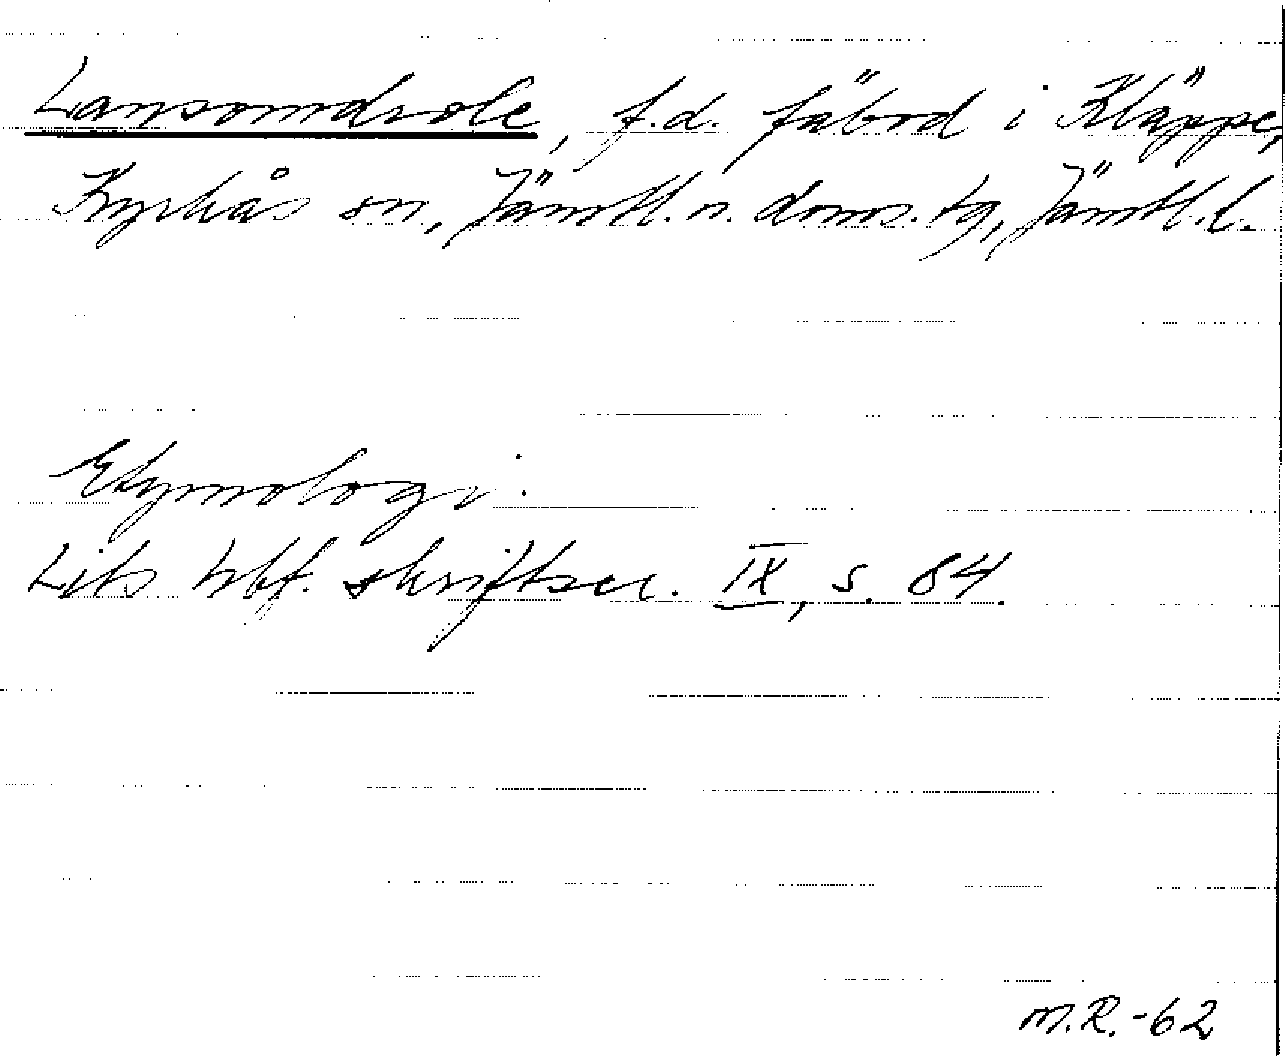 Lansomdrole, f.d. fäbod i Kläppe,
Kyrkås sn, Jämtl. n. doms. tg, Jämtl. l.
Etymologi:
Lits hbf. skriftser. IX, s. 84.
M.R.-62